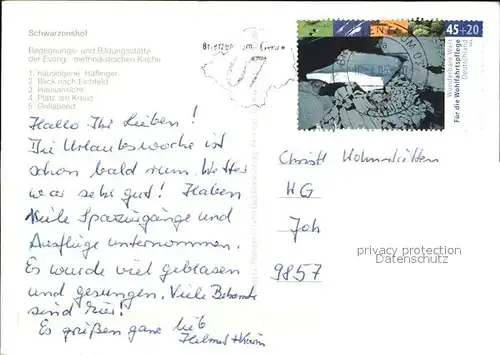 Schwarzenshof
Begegnungs- und Bildungsstätte
der Evang.-methodistischen Kirche
1. hauseigene Haflinger
2. Blick nach Eichfeld
3. Hausansicht
4. Platz am Kreuz
5. Grillabend
Hallo Ihr Lieben!
Die Urlaubswoche ist
schon bald rum. Wetter
war sehr gut! Haben
viele Spaziergänge und
Ausflüge unternommen.
Es wurde viel geblasen
und gesungen. Viele Bekannte
sind hier!
Es grüßen ganz lieb
Helmut + Karin
45+20
Für die Wohlfahrtspflege
Deutschland
Christl
WG
Joh
9857
privacy protection
Datenschutz